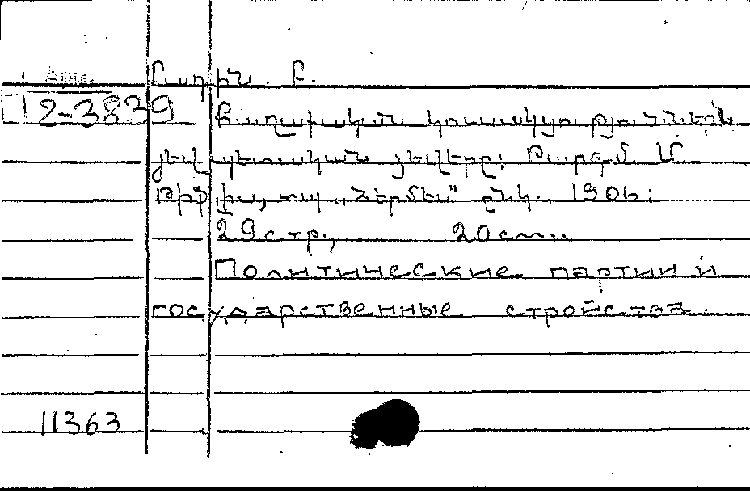 12-3839
Քաղաքական կուսակցութիւնները
եւ պետական ձեւերը: Թարգմ. Մ.
Թիֆլիս, տպ. „Հերմես" ընկ. 1906:
29 стр., 20 см..
Политические партии и
государственные стройства
11363